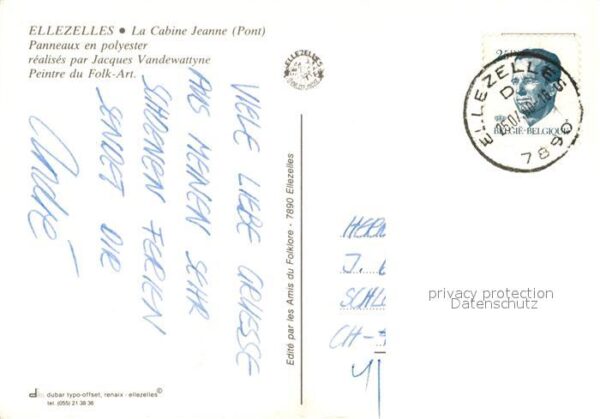 ELLEZELLES • La Cabine Jeanne (Pont)
Panneaux en polyester
réalisés par Jacques Vandewattyne
Peintre du Folk-Art.
ELLEZELLES
VIELE LIEBE GRUESSE
AUS MEINEN SEHR
SCHOENEN FERIEN
SENDET DIR
André
Edité par les Amis du Folklore - 7890 Ellezelles
dubar typo-offset, renaix - ellezelles©
tel. (055) 21 38 36
BELGIË-BELGIQUE
ELLEZELLES
D
7890
HERR
J.
SCHL
CH-
privacy protection
Datenschutz